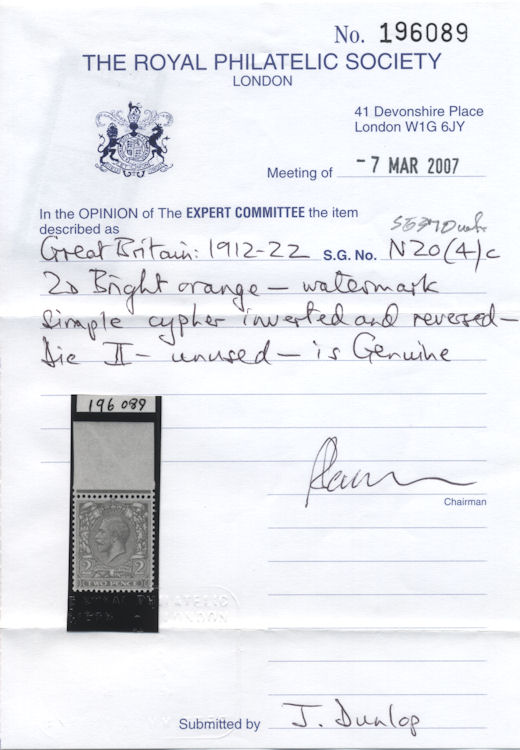 No. 196089
THE ROYAL PHILATELIC SOCIETY
LONDON
41 Devonshire Place
London W1G 6JY
Meeting of - 7 MAR 2007
In the OPINION of The EXPERT COMMITTEE the item
described as
Great Britain: 1912-22 S.G. No. N20(4)c
2D Bright orange — watermark
simple cypher inverted and reversed —
Die II — unused — is Genuine
196 089
Chairman
2 2
TWO PENCE
ROYAL PHILATELIC
SOCIETY LONDON
Submitted by J. Dunlop